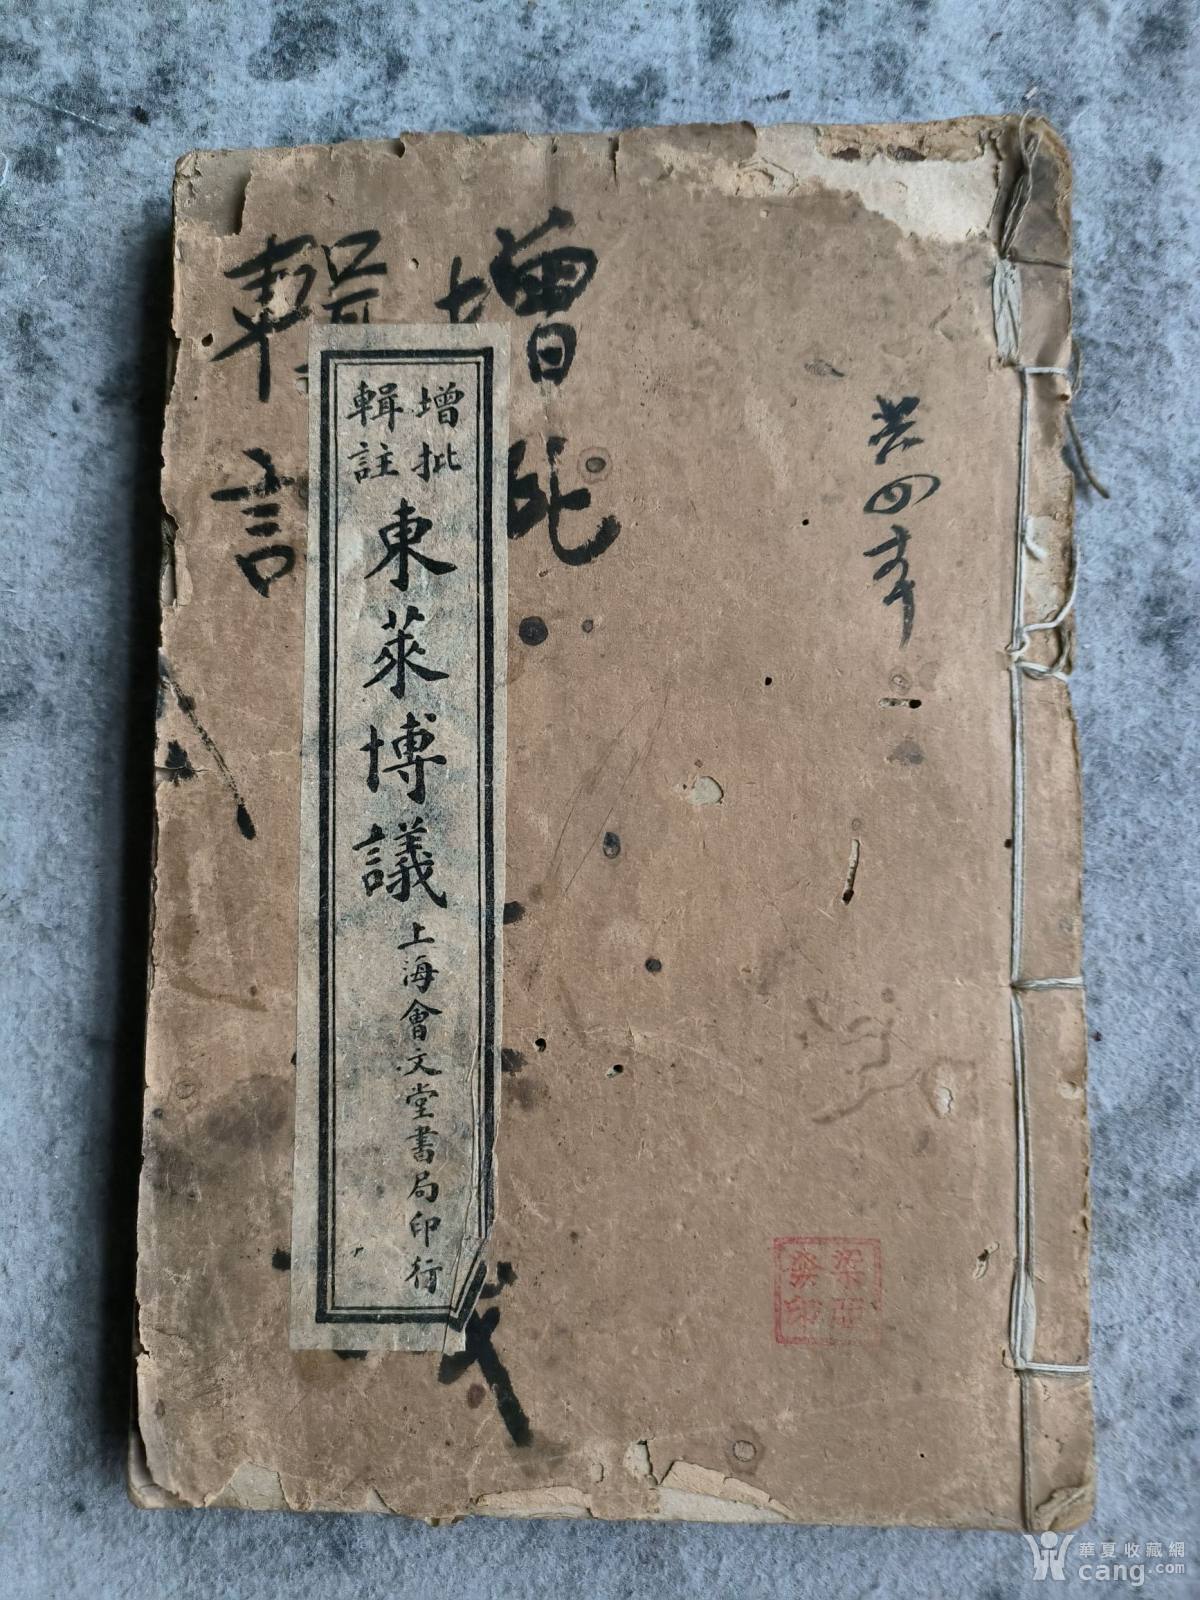 共四本
增批
輯
增批
輯註
東萊博議
上海會文堂書局印行
華夏收藏網
cang.com